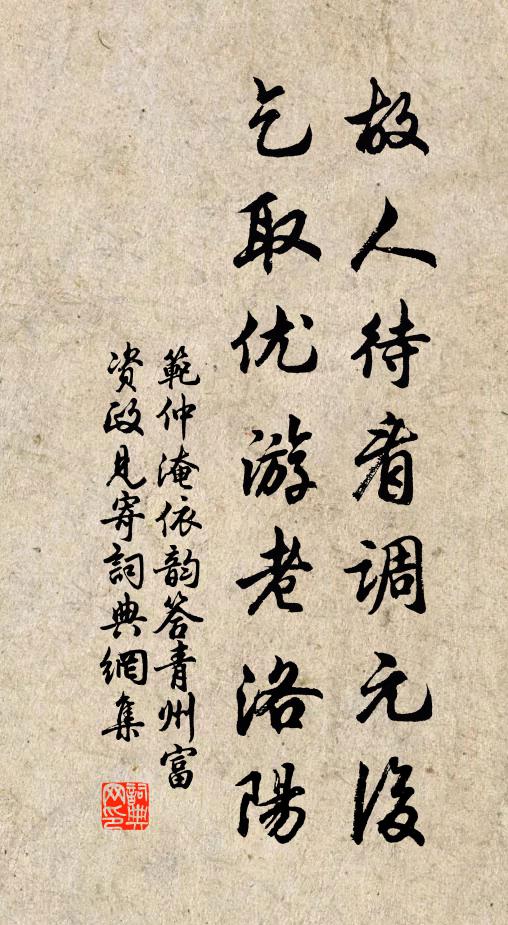 故人待看调元後
乞取优游老洛陽
範仲淹依韵答青州富
資政見寄詞典網集
詞典网印